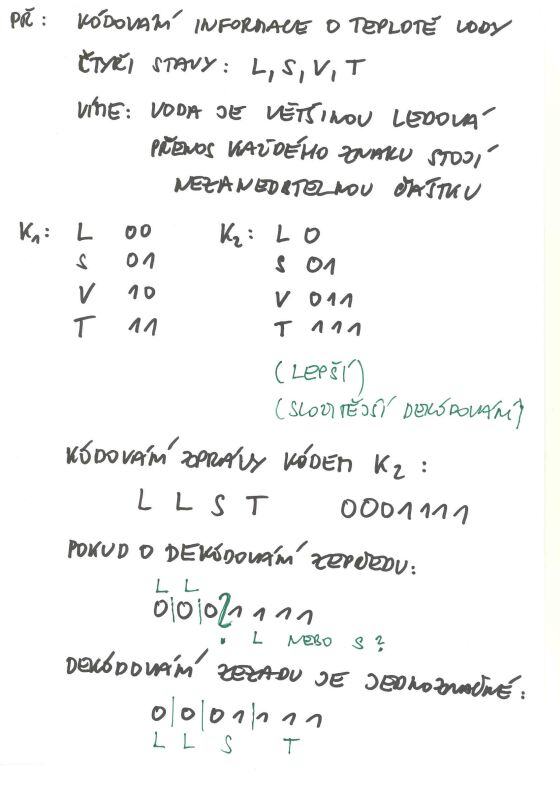 PŘ: KÓDOVÁNÍ INFORMACE O TEPLOTĚ VODY
ČTYŘI STAVY: L, S, V, T
VÍME: VODA JE VĚTŠINOU LEDOVÁ
PŘENOS KAŽDÉHO ZNAKU STOJÍ
NEZANEDBTELNOU ČÁSTKU
K1: L 00 K2: L 0
S 01 S 01
V 10 V 011
T 11 T 111
(LEPŠÍ)
(SLOŽITĚJŠÍ DEKÓDOVÁNÍ)
KÓDOVÁNÍ ZPRÁVY KÓDEM K2:
L L S T 0001111
POKUD O DEKÓDOVÁNÍ ZEPŘEDU:
L L
0|0|0?1111
L NEBO S?
DEKÓDOVÁNÍ ZEZADU JE JEDNOZNAČNÉ:
0|0|01|111
L L S T